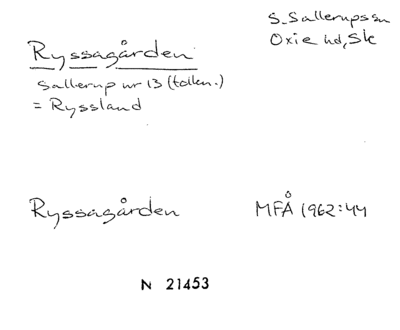 S. Sallerups sn
Oxie hd, Sk
Ryssagården
Sallerup nr 13 (tolken.)
= Ryssland
Ryssagården MFÅ 1962:44
N 21453